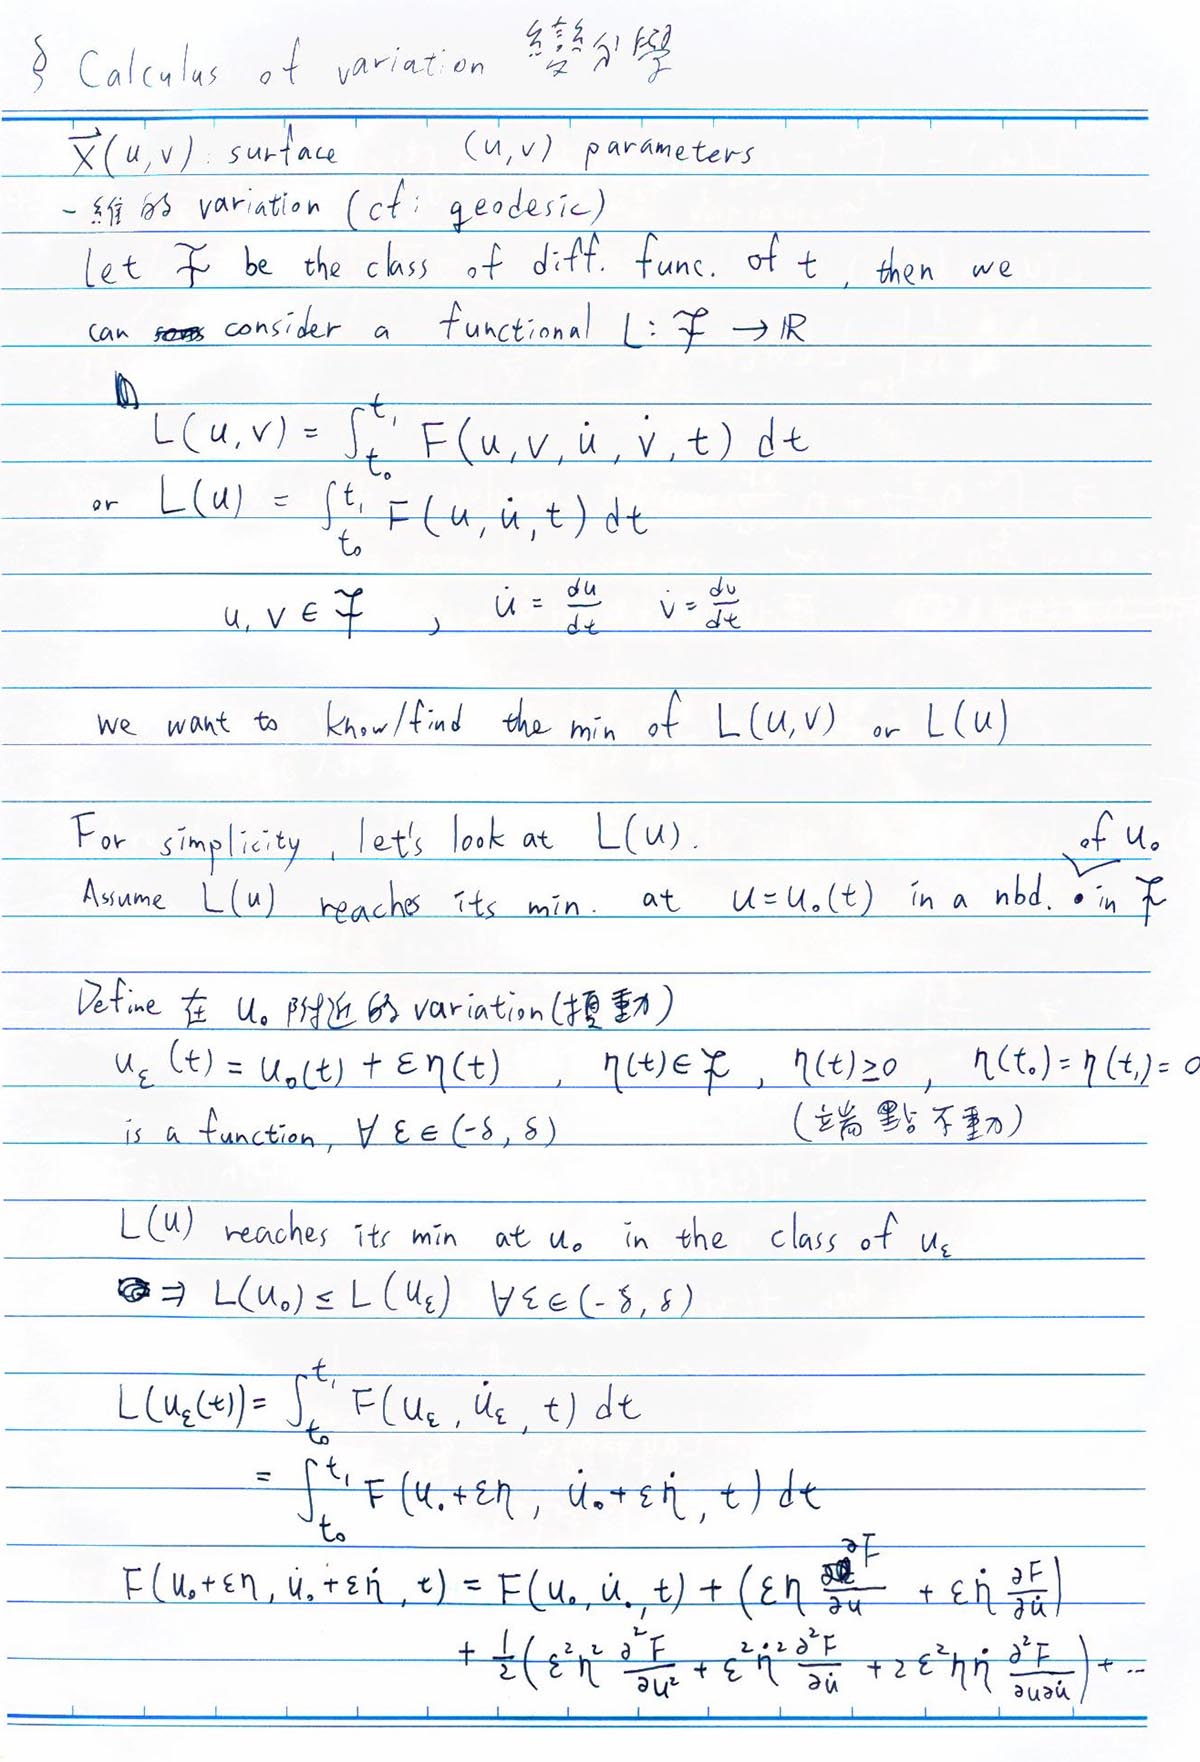 § Calculus of variation 變分學
X⃗(u,v): surface (u,v) parameters
- 維的 variation (cf: geodesic)
Let ℱ be the class of diff. func. of t, then we
can consider a functional L: ℱ → ℝ
L(u,v) = ∫_{t₀}^{t₁} F(u,v,u̇,v̇,t) dt
or L(u) = ∫_{t₀}^{t₁} F(u,u̇,t) dt
u,v ∈ ℱ , u̇ = du/dt v̇ = dv/dt
we want to know/find the min of L(u,v) or L(u)
For simplicity, let's look at L(u).
Assume L(u) reaches its min. at u=u₀(t) in a nbd. of u₀ in ℱ
Define 在 u₀ 附近的 variation (擾動)
u_ε(t) = u₀(t) + εη(t) , η(t)∈ℱ , η(t)≥0 , η(t₀)=η(t₁)=0
is a function, ∀ ε∈(-δ, δ) (端點不動)
L(u) reaches its min at u₀ in the class of u_ε
⇒ L(u₀) ≤ L(u_ε) ∀ε∋(-δ, δ)
L(u_ε(t)) = ∫_{t₀}^{t₁} F(u_ε, u̇_ε, t) dt
= ∫_{t₀}^{t₁} F(u₀+εη, u̇₀+εη̇, t) dt
F(u₀+εη, u̇₀+εη̇, t) = F(u₀, u̇₀, t) + (εη ∂F/∂u + εη̇ ∂F/∂u̇)
+ 1/2 (ε²η² ∂²F/∂u² + ε²η̇² ∂²F/∂u̇ + 2ε²ηη̇ ∂²F/∂u∂u̇) + ...